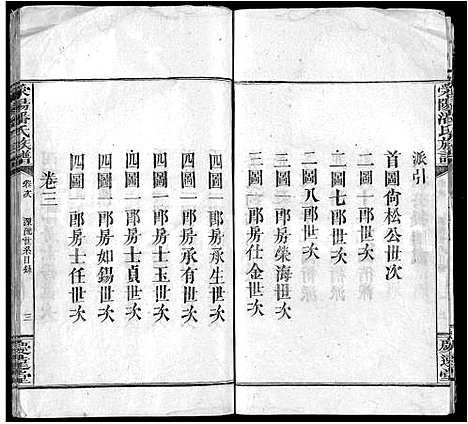 滎陽潘氏族譜
派引
首圖尙松公世次
二圖五郎世次
二圖七郎世次
二圖八郎世次
三圖一郎房榮海世次
三圖一郎房仕金世次
慶延堂
四圖一郎房承生世次
四圖一郎房承有世次
四圖一郎房士玉世次
四圖一郎房士貞世次
四圖一郎房如錫世次
四圖一郎房士任世次
卷三
滎陽潘氏族譜
卷次
源流世系目錄
三
慶延堂